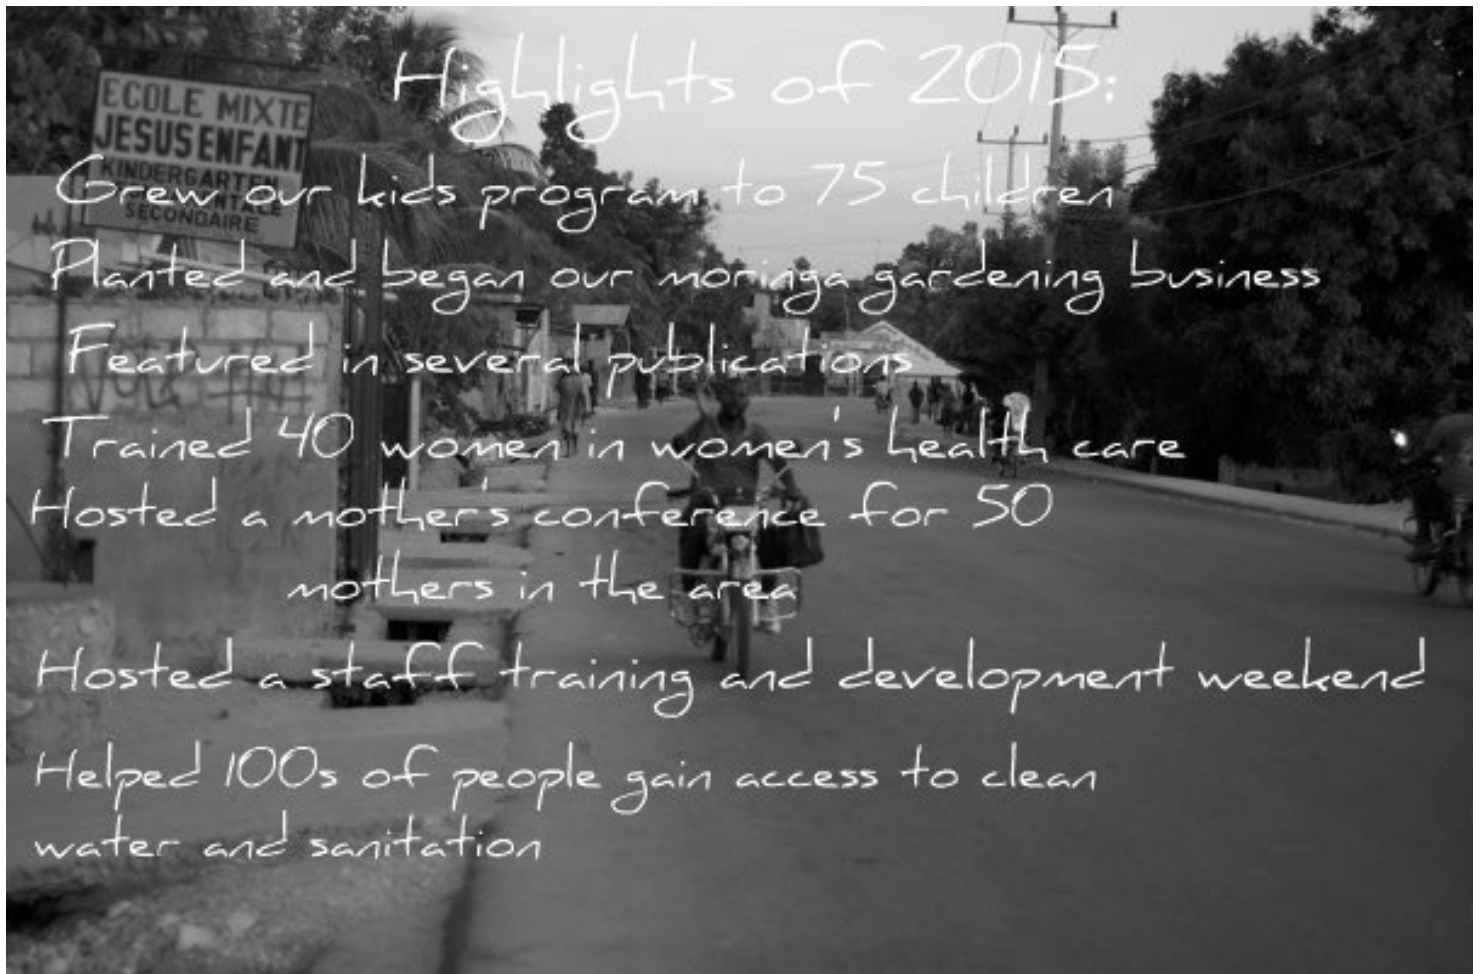 Highlights of 2015:
ECOLE MIXTE
JESUS ENFANT
KINDERGARTEN
SECONDAIRE
Grew our kids program to 75 children
Planted and began our moringa gardening business
Featured in several publications
Trained 40 women in women's health care
Hosted a mother's conference for 50
mothers in the area
Hosted a staff training and development weekend
Helped 100s of people gain access to clean
water and sanitation